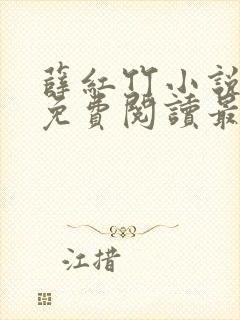 薛紅竹小說
免費閱讀最
江措